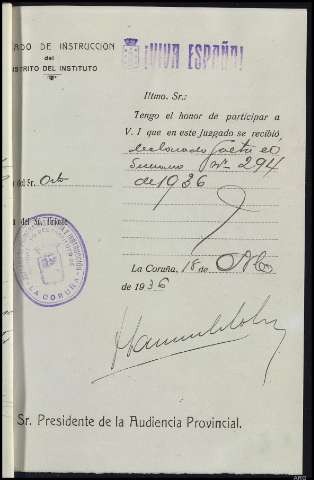 ADO DE INSTRUCCION
del
ISTRITO DEL INSTITUTO
¡VIVA ESPAÑA!
Iltmo. Sr.:
Tengo el honor de participar a
V. I que en este Juzgado se recibió
declarado
Sumario nº 294
de 1936
del Sr. Orto
a del Sr.
LA CORUÑA
La Coruña, 18 de
de 1936
Sr. Presidente de la Audiencia Provincial.
ARG